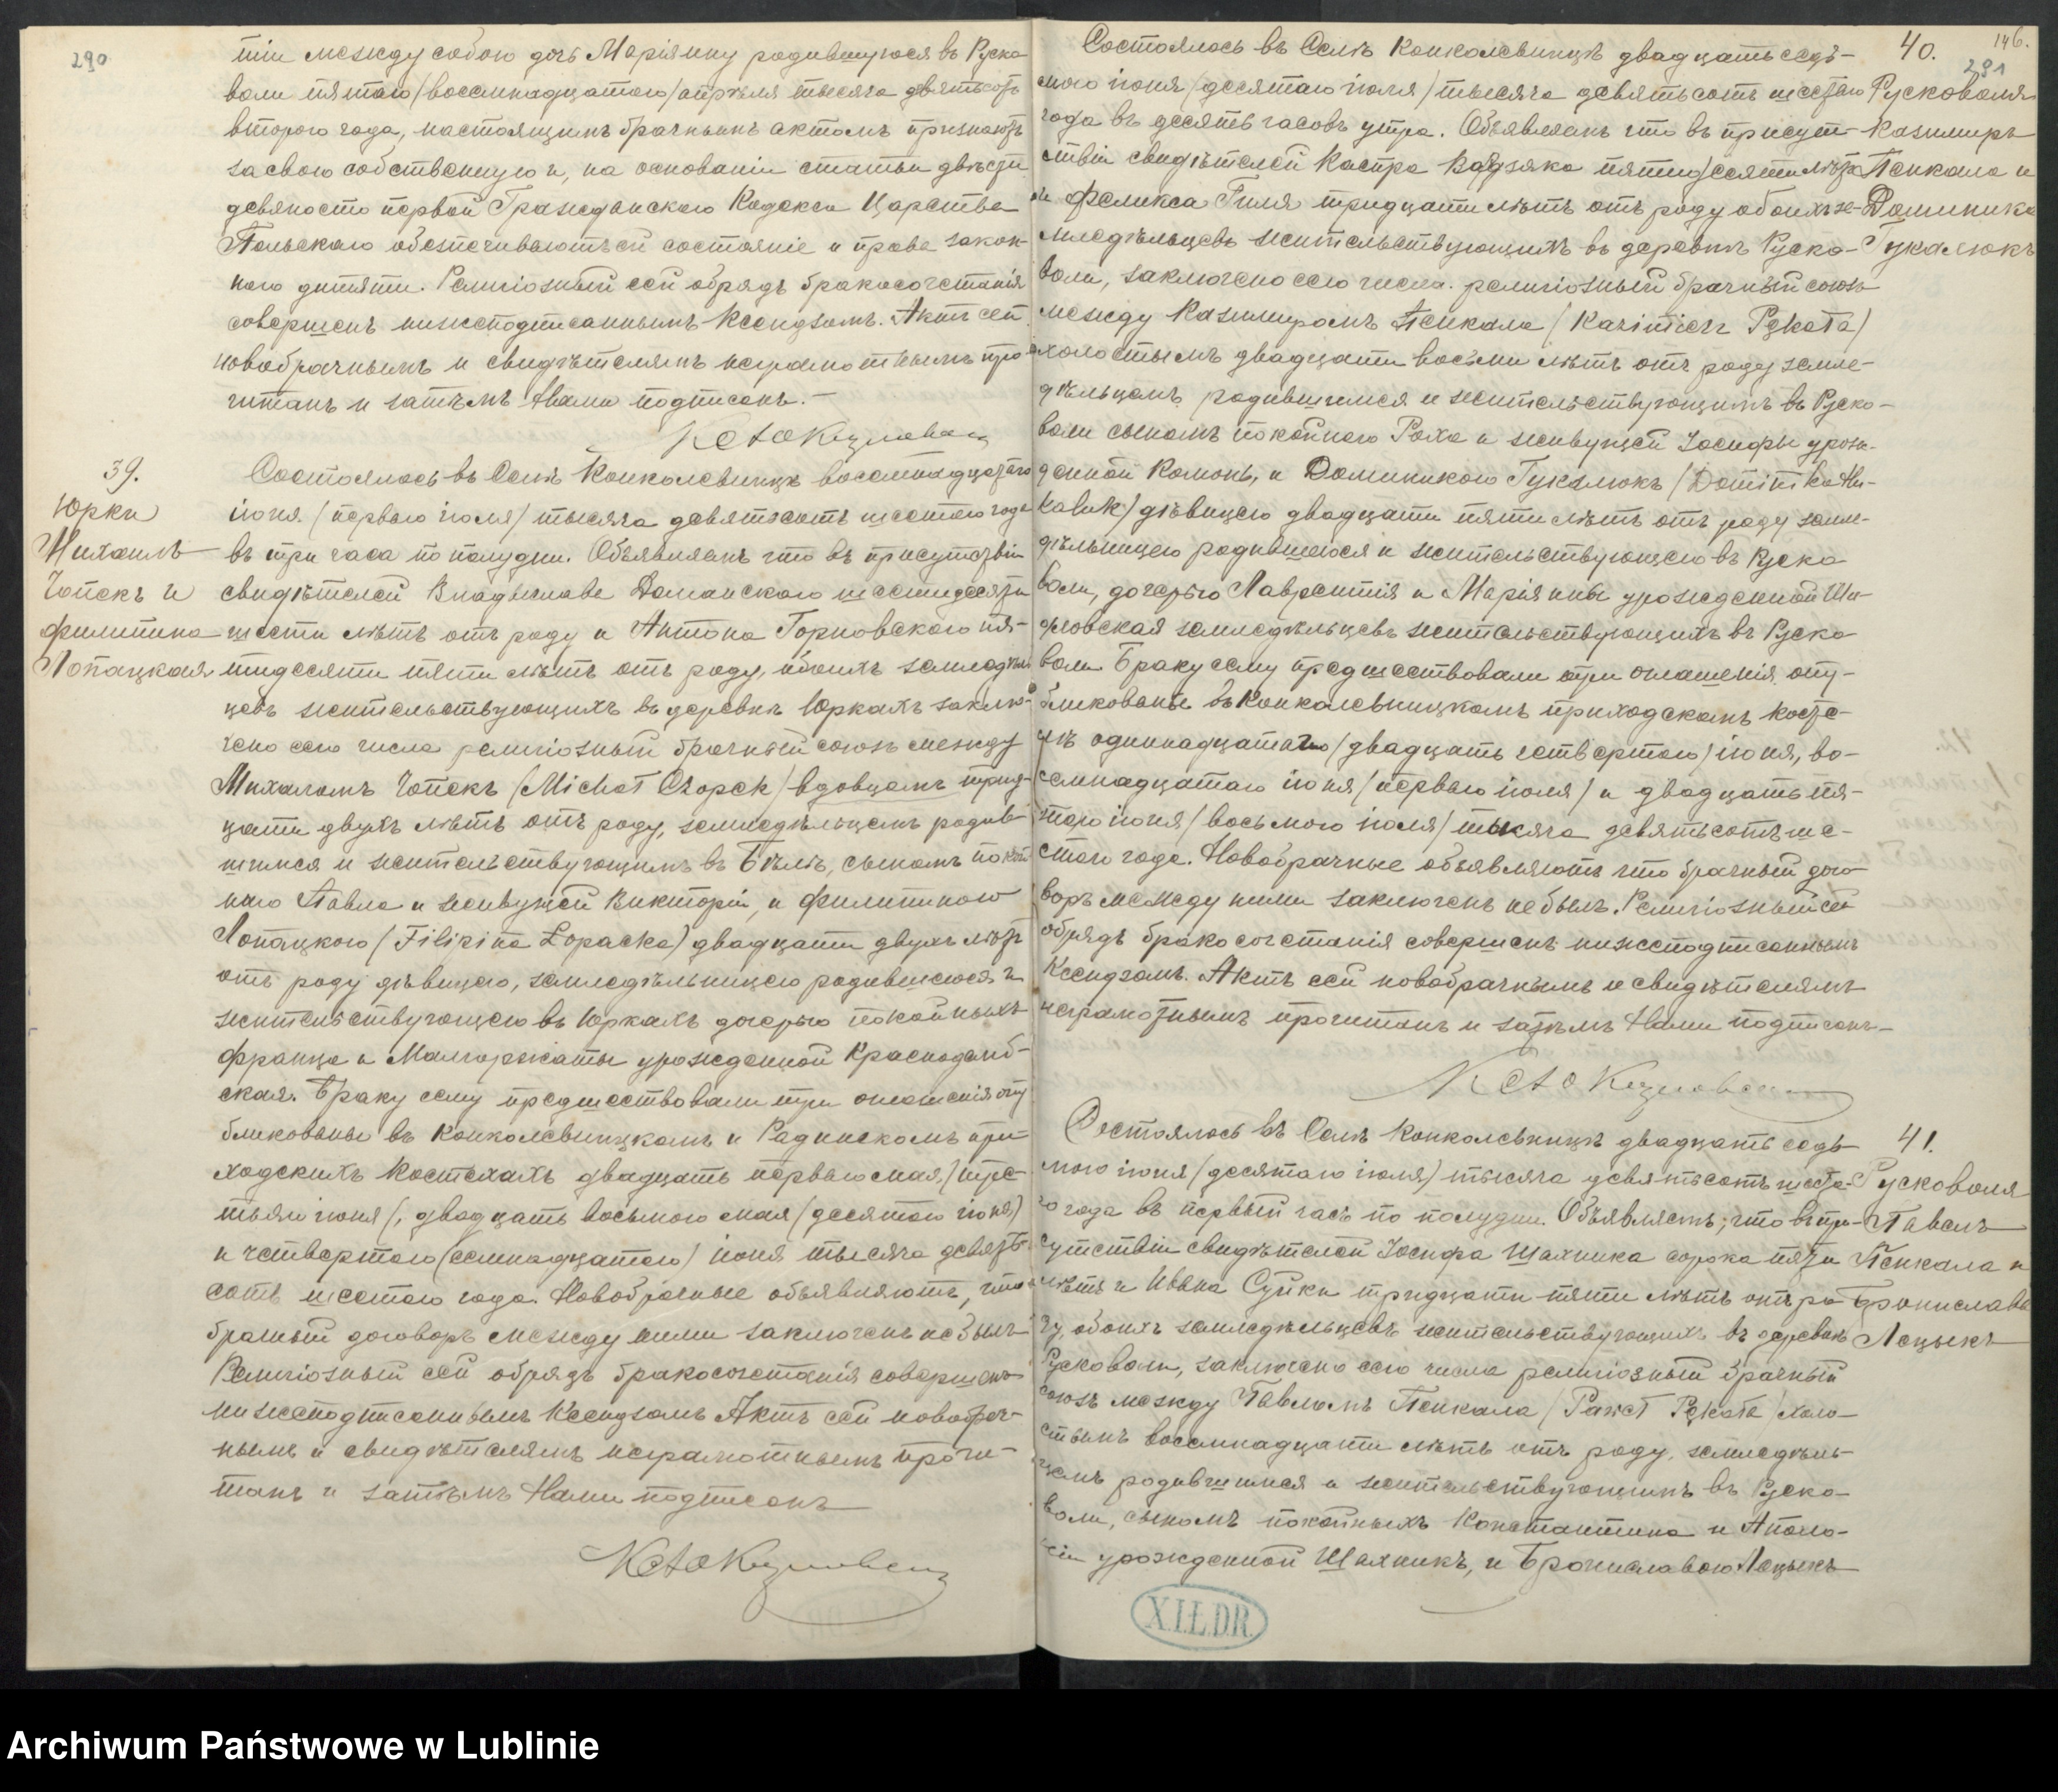 290
тіи между собою дочь Маріянну родившуюся въ Руско-
воли пятаго /восемнадцатаго/ апрѣля тысяча девятьсотъ
второго года, настоящимъ брачнымъ актомъ признаютъ
за свою собственную и, на основаніи статьи двѣсти
девяносто первой Гражданскаго Кодекса Царства
Польскаго обезпечиваютъ ей состояніе и права закон-
наго дитяти. Религіозный сей обрядъ бракосочетанія
совершенъ нижеподписаннымъ Ксендзомъ. Актъ сей
новобрачнымъ и свидѣтелямъ неграмотнымъ про-
читанъ и затѣмъ Нами подписанъ.-
39.
Юрки
Михаилъ
Чопекъ и
Филипина
Лопацкая
Состоялось въ Селѣ Конколевницѣ восемнадцатаго
іюня /перваго іюля/ тысяча девятьсотъ шестого года
въ три часа по полудни. Объявляемъ что въ присутствіи
свидѣтелей Владыслава Доманскаго шестидесяти
шести лѣтъ отъ роду и Антона Горновского пя-
тидесяти пяти лѣтъ отъ роду, обоихъ земледѣль
цевъ жительствующихъ въ деревнѣ Юркахъ заклю-
чено сего числа религіозный брачный союзъ между
Михаломъ Чопекъ /Michał Czopek/ вдовцемъ трид-
цати двухъ лѣтъ отъ роду, земледѣльцемъ родив-
шимся и жительствующимъ въ Бѣлѣ, сыномъ покой
наго Павла и живущей Викторіи, и Филипиною
Лопацкою /Filipina Łopacka/ двадцати двухъ лѣтъ
отъ роду дѣвицею, земледѣльницею родившеюся и
жительствующею въ Юркахъ дочерью покойныхъ
Франца и Малгоржаты урожденной Краснодемб-
ская. Браку сему предшествовали три оглашенія опу
бликованы въ Конколевницкомъ и Радинскомъ при-
ходскихъ костелахъ двадцать перваго мая, /тре-
тьяго іюня/, двадцать восьмого мая /десятаго іюня/
и четвертаго /семнадцатаго/ іюня тысяча девять-
сотъ шестого года. Новобрачные объявляютъ, что
брачный договоръ между ними заключенъ не былъ
Религіозный сей обрядъ бракосочетанія совершенъ
нижеподписаннымъ Ксендзомъ Актъ сей новобрач-
нымъ и свидѣтелямъ неграмотнымъ прочи-
танъ и затѣмъ Нами подписанъ
146.
291
40.
Русковоля
Казимиръ
Пенкала и
Доминика
Гукалюкъ
Состоялось въ Селѣ Конколевницѣ двадцать седь-
мого іюня /десятаго іюля/ тысяча девятьсотъ шестаго
года въ десять часовъ утра. Объявляемъ что въ присут-
ствіи свидѣтелей Каспра пятидесяти лѣтъ
и Феликса Гиля тридцати лѣтъ отъ роду обоихъ зе-
мледѣльцевъ жительствующихъ въ деревнѣ Руско-
воли, заключено сего числа религіозный брачный союзъ
между Казимиромъ Пенкала /Kazimierz Pękała/
холостымъ двадцати восьми лѣтъ отъ роду земле-
дѣльцемъ родившимся и жительствующимъ въ Руско-
воли сыномъ покойнаго Роха и живущей Іосифы урож-
денной Комонь, и Доминикою Гукалюкъ /Dominika Hu-
kaluk/ дѣвицею двадцати пяти лѣтъ отъ роду земле-
дѣльницею родившеюся и жительствующею въ Руско
воли, дочерью Лаврентія и Маріянны урожденной
земледѣльцевъ жительствующихъ въ Руско-
воли Браку сему предшествовали три оглашенія опу-
бликованы въ Конколевницкомъ приходскомъ косте-
лѣ одиннадцатаго /двадцать четвертаго/ іюня, во-
семнадцатаго іюня /перваго іюля/ и двадцать пя-
таго іюня /восьмого іюля/ тысяча девятьсотъ ше-
стого года. Новобрачные объявляютъ что брачный дого-
воръ между ними заключенъ не былъ. Религіозный сей
обрядъ бракосочетанія совершенъ нижеподписаннымъ
Ксендзомъ. Актъ сей новобрачнымъ и свидѣтелямъ
неграмотнымъ прочитанъ и затѣмъ Нами подписанъ.-
41.
Русковоля
Павелъ
Пенкала и
Брониславa
Лецыкъ
Состоялось въ Селѣ Конколевницѣ двадцать седь-
мого іюня /десятаго іюля/ тысяча девятьсотъ шеста-
го года въ первый часъ по полудни. Объявляемъ, что въ при-
сутствіи свидѣтелей Іосифа Шахника сорока пяти
лѣтъ и Ивана Суйки тридцати пяти лѣтъ отъ ро-
ду, обоихъ земледѣльцевъ жительствующихъ въ деревнѣ
Русковоли, заключено сего числа религіозный брачный
союзъ между Павломъ Пенкала /Paweł Pękała/ холо-
стымъ восемнадцати лѣтъ отъ роду, земледѣль-
цемъ родившимся и жительствующимъ въ Руско-
воли, сыномъ покойныхъ Константина и Аполо-
ніи урожденной Шахникъ, и Брониславою Лецыкъ
X.I.L.D.R.
Archiwum Państwowe w Lublinie